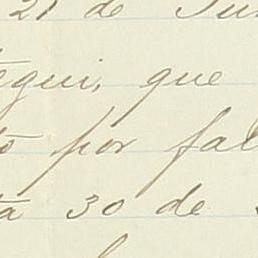 21 de Jun
tegui, que
to por fal
ta 30 de